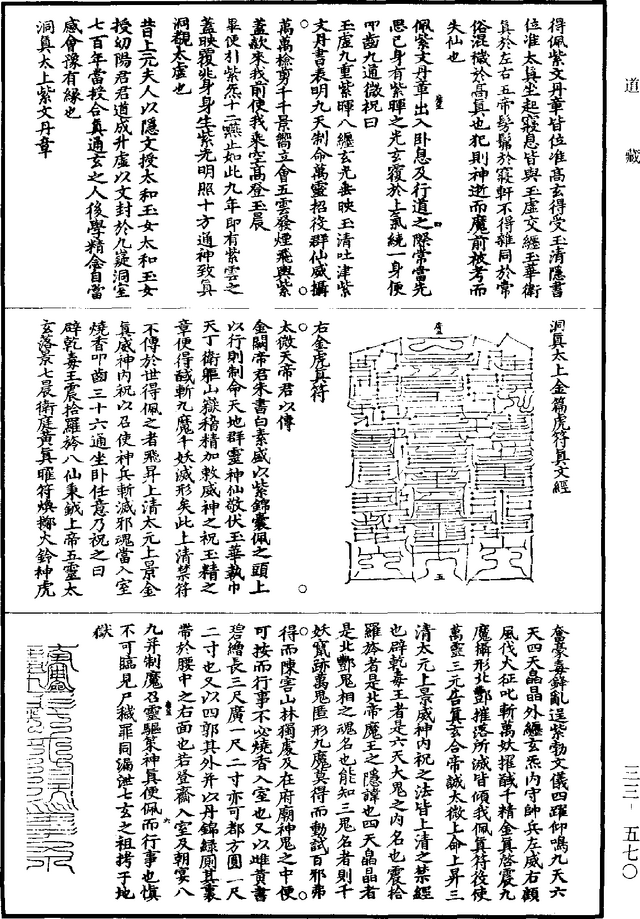 道藏
得佩紫文丹章皆位准高玄得受玉清隱書
位准太真坐起寢息皆與玉虛交纏玉華衛
真於左右五帝髣髴於寢軒不得雜同於常
俗混穢於高真也犯則神逝而魔前被考而
失仙也
佩紫文丹章出入卧息及行道之際常當先
思己身有紫暉之光玄覆於上氣繞一身便
叩齒九通微祝曰
玉虛九重紫暉八纏玄光垂映玉清吐津紫
文丹書表明九天制命萬靈招役群仙威攝
萬萬檢剪千千景嚮立會五雲發煙飛輿紫
蓋歘來我前使我乘空高登玉晨
畢便引紫炁十二嚥止如此九年即有紫雲之
蓋映覆兆身身生紫光明照十方通神致真
洞觀太虛也
昔上元夫人以隱文授太和玉女太和玉女
授幼陽君君道成升虛以文封於九嶷洞室
七百年當授合真通玄之人後學精念自當
感會豫有緣也
洞真太上紫文丹章
洞真太上金篇虎符真文經
右金虎真符
太微天帝君以傳
金闕帝君朱書白素盛以紫錦囊佩之頭上
以行則制命天地群靈神仙敬伏玉華執巾
天丁衛軀山嶽稽精加敕威神之祝玉精之
章便得馘斬九魔千妖滅形矣此上清禁符
不傳於世得佩之者飛昇上清太元上景金
真威神內祝以召使神兵斬滅邪魂當入室
燒香叩齒三十六通坐卧任意乃祝之曰
辟乾毒王震拾羅族八仙秉鉞上帝五靈太
玄落景七晨衛庭黃真曜符煥擲火鈴神虎
奮毒鋒亂逞紫勃文儀四躍仰鳴九天六
天四天晶晶外纏玄炁內守帥兵左威右顧
風伐火征叱斬萬妖擢馘千精金真啓震九
魔攝形北酆摧落所滅皆傾我佩真符役使
萬靈三元告真玄合帝誠太微上命上昇三
清太元上景威神內祝之法皆上清之禁經
也辟乾毒王者是六天大鬼之內名也震拾
羅族者是北帝魔王之隱諱也四天晶晶者
是北酆鬼相之魂名也能知三鬼名者則千
妖竄跡萬鬼匿形九魔莫得而動試百邪弗
得而陳害山林獨處及在府廟神鬼之中便
可按而行事不必燒香入室也又以雌黃書
碧繒長三尺廣一尺二寸亦可都方圓一尺
二寸也又以四郭其外并以丹錦緣廁其裏
帶於腰中之右面也若登齋入室及朝宴八
九并制魔召靈驅策神真便佩而行事也慎
不可臨見尸穢罪同漏泄七玄之祖拷于地
獄
三三·五七〇